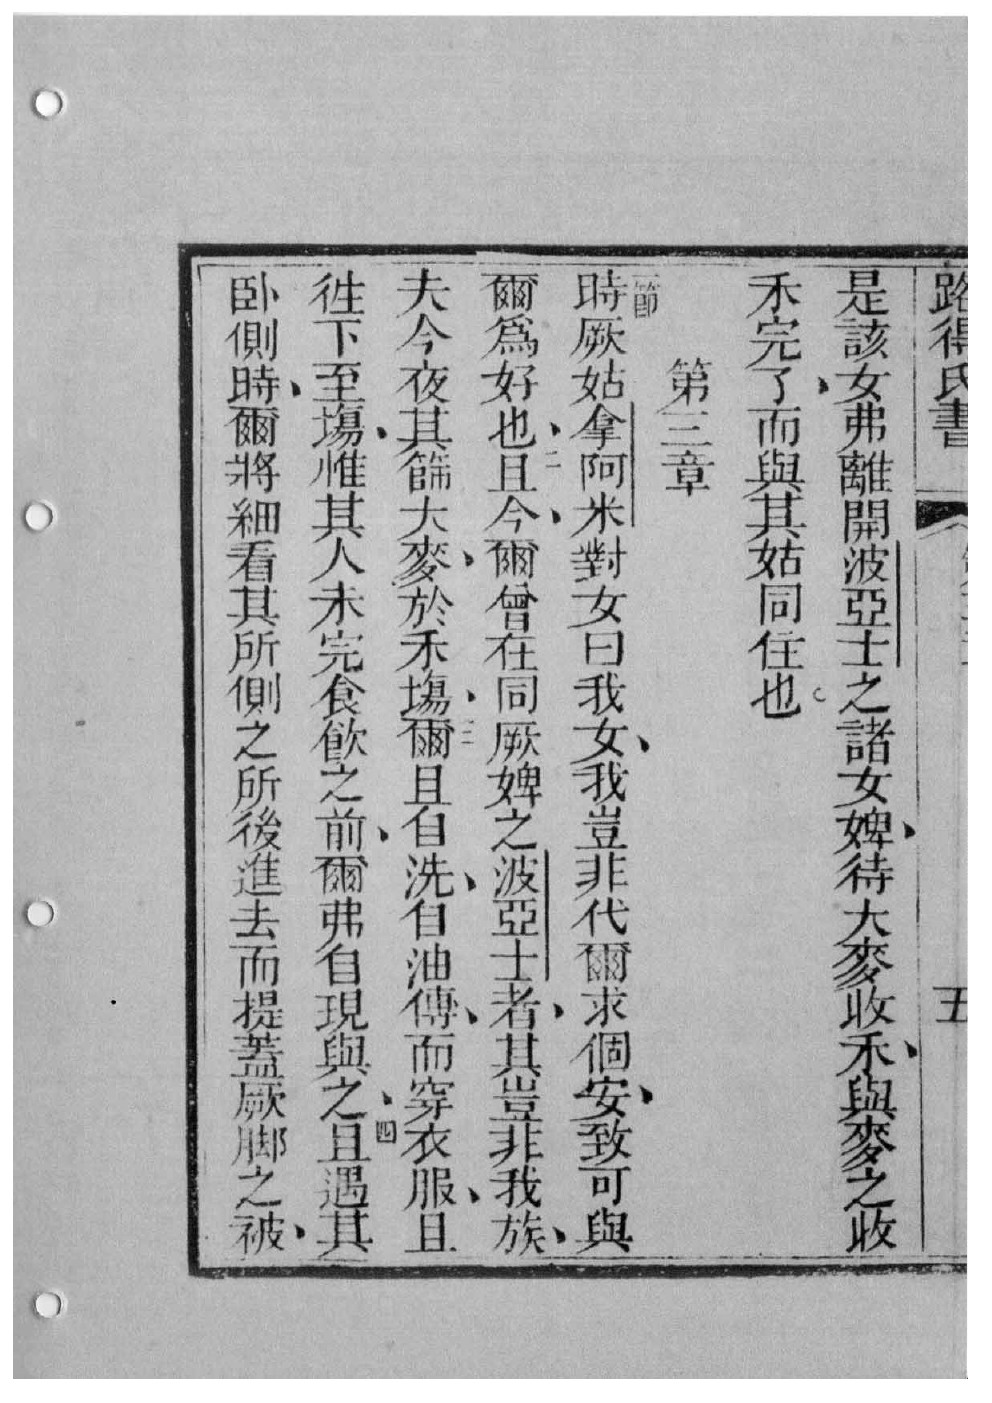 路得氏書 五
是該女弗離開波亞士之諸女婢、待大麥收禾、與麥之收
禾完了、而與其姑同住也。
第三章
一節時厥姑拿阿米對女曰我女、我豈非代爾求個安、致可與
爾為好也、二且今、爾曾在同厥婢之波亞士者、其豈非我族、
夫今夜其篩大麥、於禾塲、三爾且自洗、自油傳、而穿衣服、且
徃下至塲、惟其人未完食飲之前、爾弗自現與之、四且遇其
卧側時、爾將細看其所側之所後進去而提蓋厥脚之被、